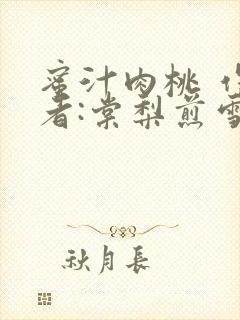 蜜汁肉桃 作
者:棠梨煎雪
秋月長